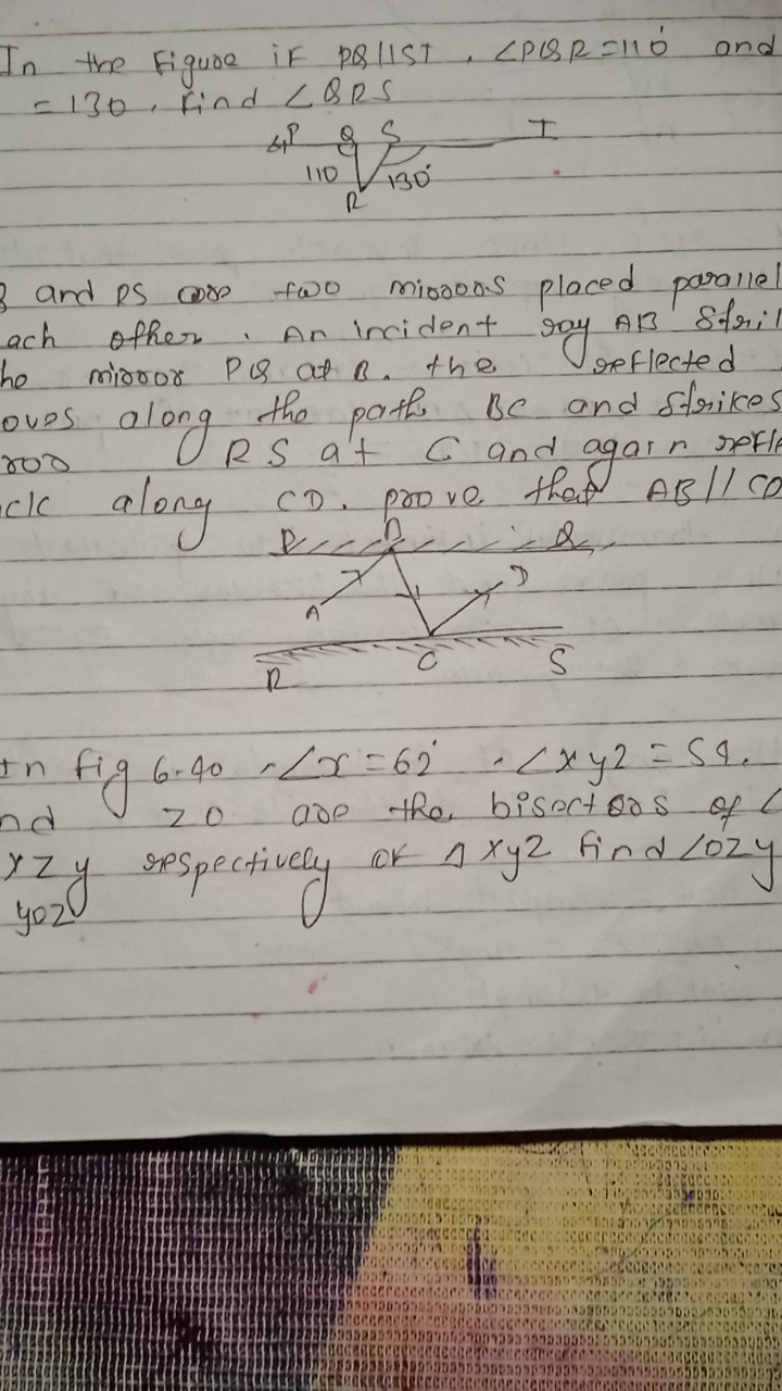 In the Figuoe iF PQ||ST, ∠PQR=110° and
=130, Find ∠QRS
P Q S T
110 130°
R
and RS are two mioooos placed parallel
ach other. An incident ray AB Stri
he miooor PQ at B. the reflected
oves along the path BC and Strikes
roo RS at C and again refl
ck along CD. prove that AB//CD
P B Q
A D
R C S
In fig 6.40, ∠x=62°, ∠xyz=54.
nd zo are the bisectoos of ∠
xzy respectively of Δxyz find ∠ozy
yoz